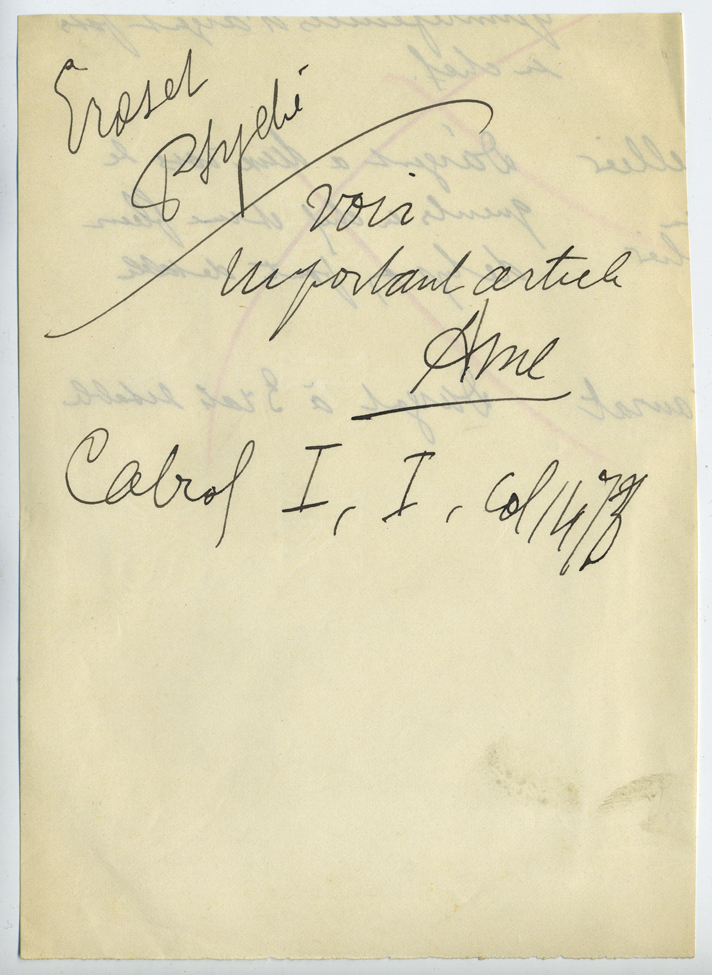 Eros et
Psyché
voir
important article
Ame
Cabrol I, I, col 1473